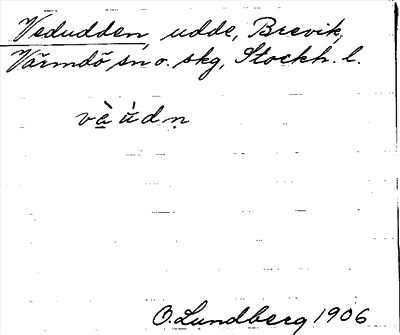 Vedudden, udde, Brevik,
Värmdö sn o. skg, Stockh. l.
vè̱ ù̇dṇ
O. Lundberg 1906